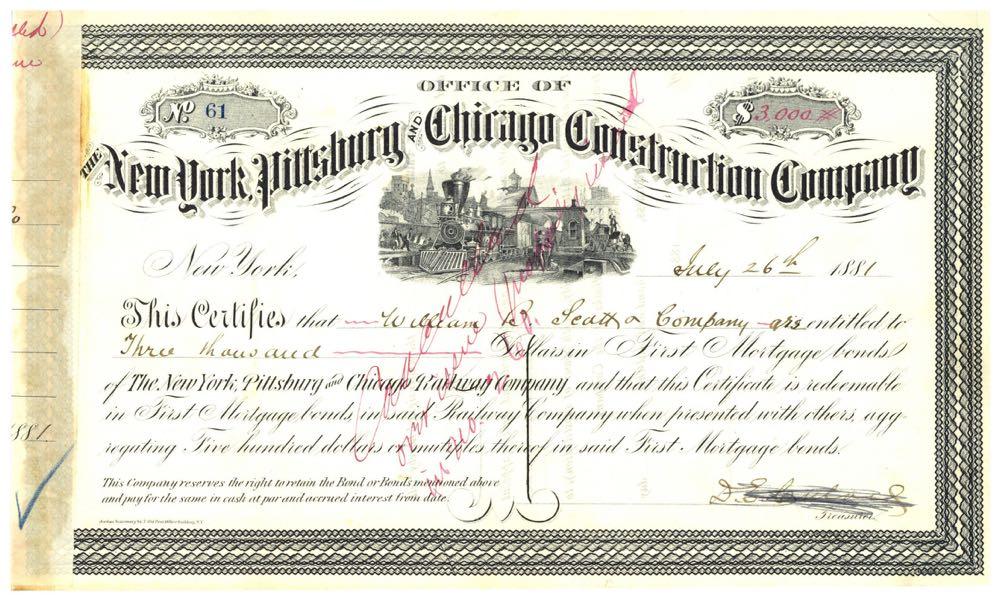 OFFICE OF
No 61
$3,000
THE New York, Pittsburg AND Chicago Construction Company
New York, July 26th 1881
This Certifies that William R. Scott & Company are entitled to
Three thousand Dollars in First Mortgage bonds
of The New York, Pittsburg and Chicago Railway Company and that this Certificate is redeemable
in First Mortgage bonds in said Railway Company when presented with others, agg-
regating Five hundred dollars or multiples thereof in said First Mortgage bonds.
This Company reserves the right to retain the Bond or Bonds mentioned above
and pay for the same in cash at par and accrued interest from date.
Treasurer.
1881